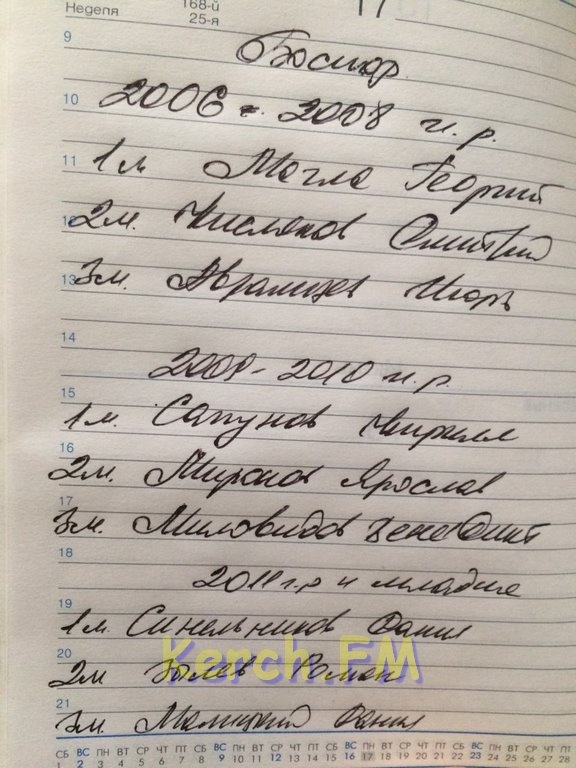 Неделя 168-й 17
25-я
9
Боспор
10 2006 - 2008 г.р.
11 1м Магла Георгий
12 2м. Числяков Дмитрий
13 3м. Абрамцев Игорь
14
2009-2010 г.р.
15
1м. Сапунов Кирилл
16
2м. Миронов Ярослав
17
3м. Миловидов Бенедикт
18
2011 г.р и младше
19
1м. Синельников Данил
Kerch.FM
20
2м Роман
21
3м. Малицкий Данил
СБ ВС ПН ВТ СР ЧТ ПТ СБ ВС ПН ВТ СР ЧТ ПТ СБ ВС ПН ВТ СР ЧТ ПТ СБ ВС ПН ВТ СР ЧТ ПТ
1 2 3 4 5 6 7 8 9 10 11 12 13 14 15 16 17 18 19 20 21 22 23 24 25 26 27 28